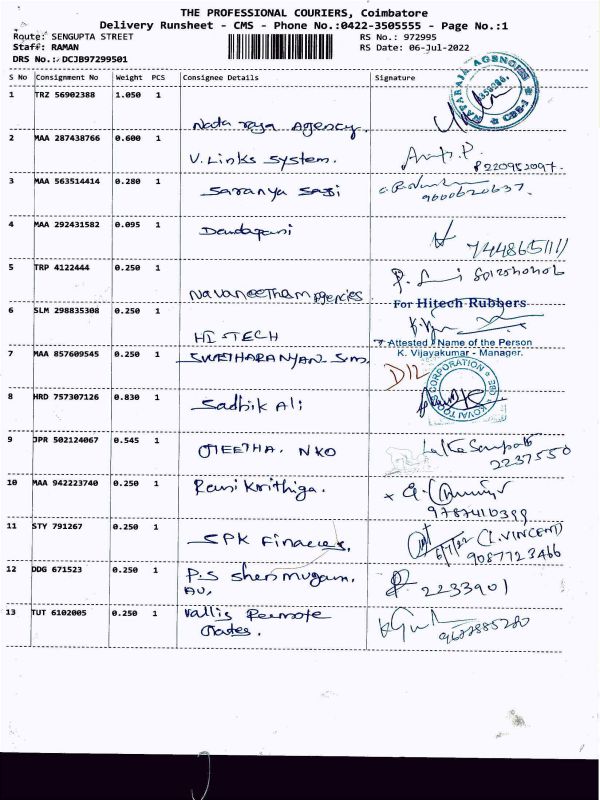 THE PROFESSIONAL COURIERS, Coimbatore
Delivery Runsheet - CMS - Phone No.:0422-3505555 - Page No.:1
Route: SENGUPTA STREET
RS No.: 972995
Staff: RAMAN
RS Date: 06-Jul-2022
DRS No.: DCJB97299501
S No Consignment No Weight PCS Consignee Details Signature
1 TRZ 56902388 1.050 1
Nataraja Agency.
2 MAA 287438766 0.600 1
V. Links System.
3 MAA 563514414 0.280 1
Saranya Sasi
9600620637.
4 MAA 292431582 0.095 1
Dandapani
5 TRP 4122444 0.250 1
Navaneetham Agencies
For Hitech Rubbers
6 SLM 298835308 0.250 1
HI TECH
Attested Name of the Person
K. Vijayakumar - Manager.
7 MAA 857609545 0.250 1
D12
CORPORATION
KOVAI TOOLS
8 HRD 757307126 0.830 1
Sadhik Ali
9 JPR 502124067 0.545 1
GEETHA. NKO
2237550
10 MAA 942223740 0.250 1
Ramikrithiga.
9787410399
11 STY 791267 0.250 1
SPK Finaces,
(L.VINCENT)
9087723466
12 DDG 671523 0.250 1
P.S Shenmugam,
2233901
13 TUT 6102005 0.250 1
Vallis